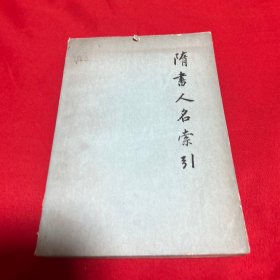 隋书人名索引